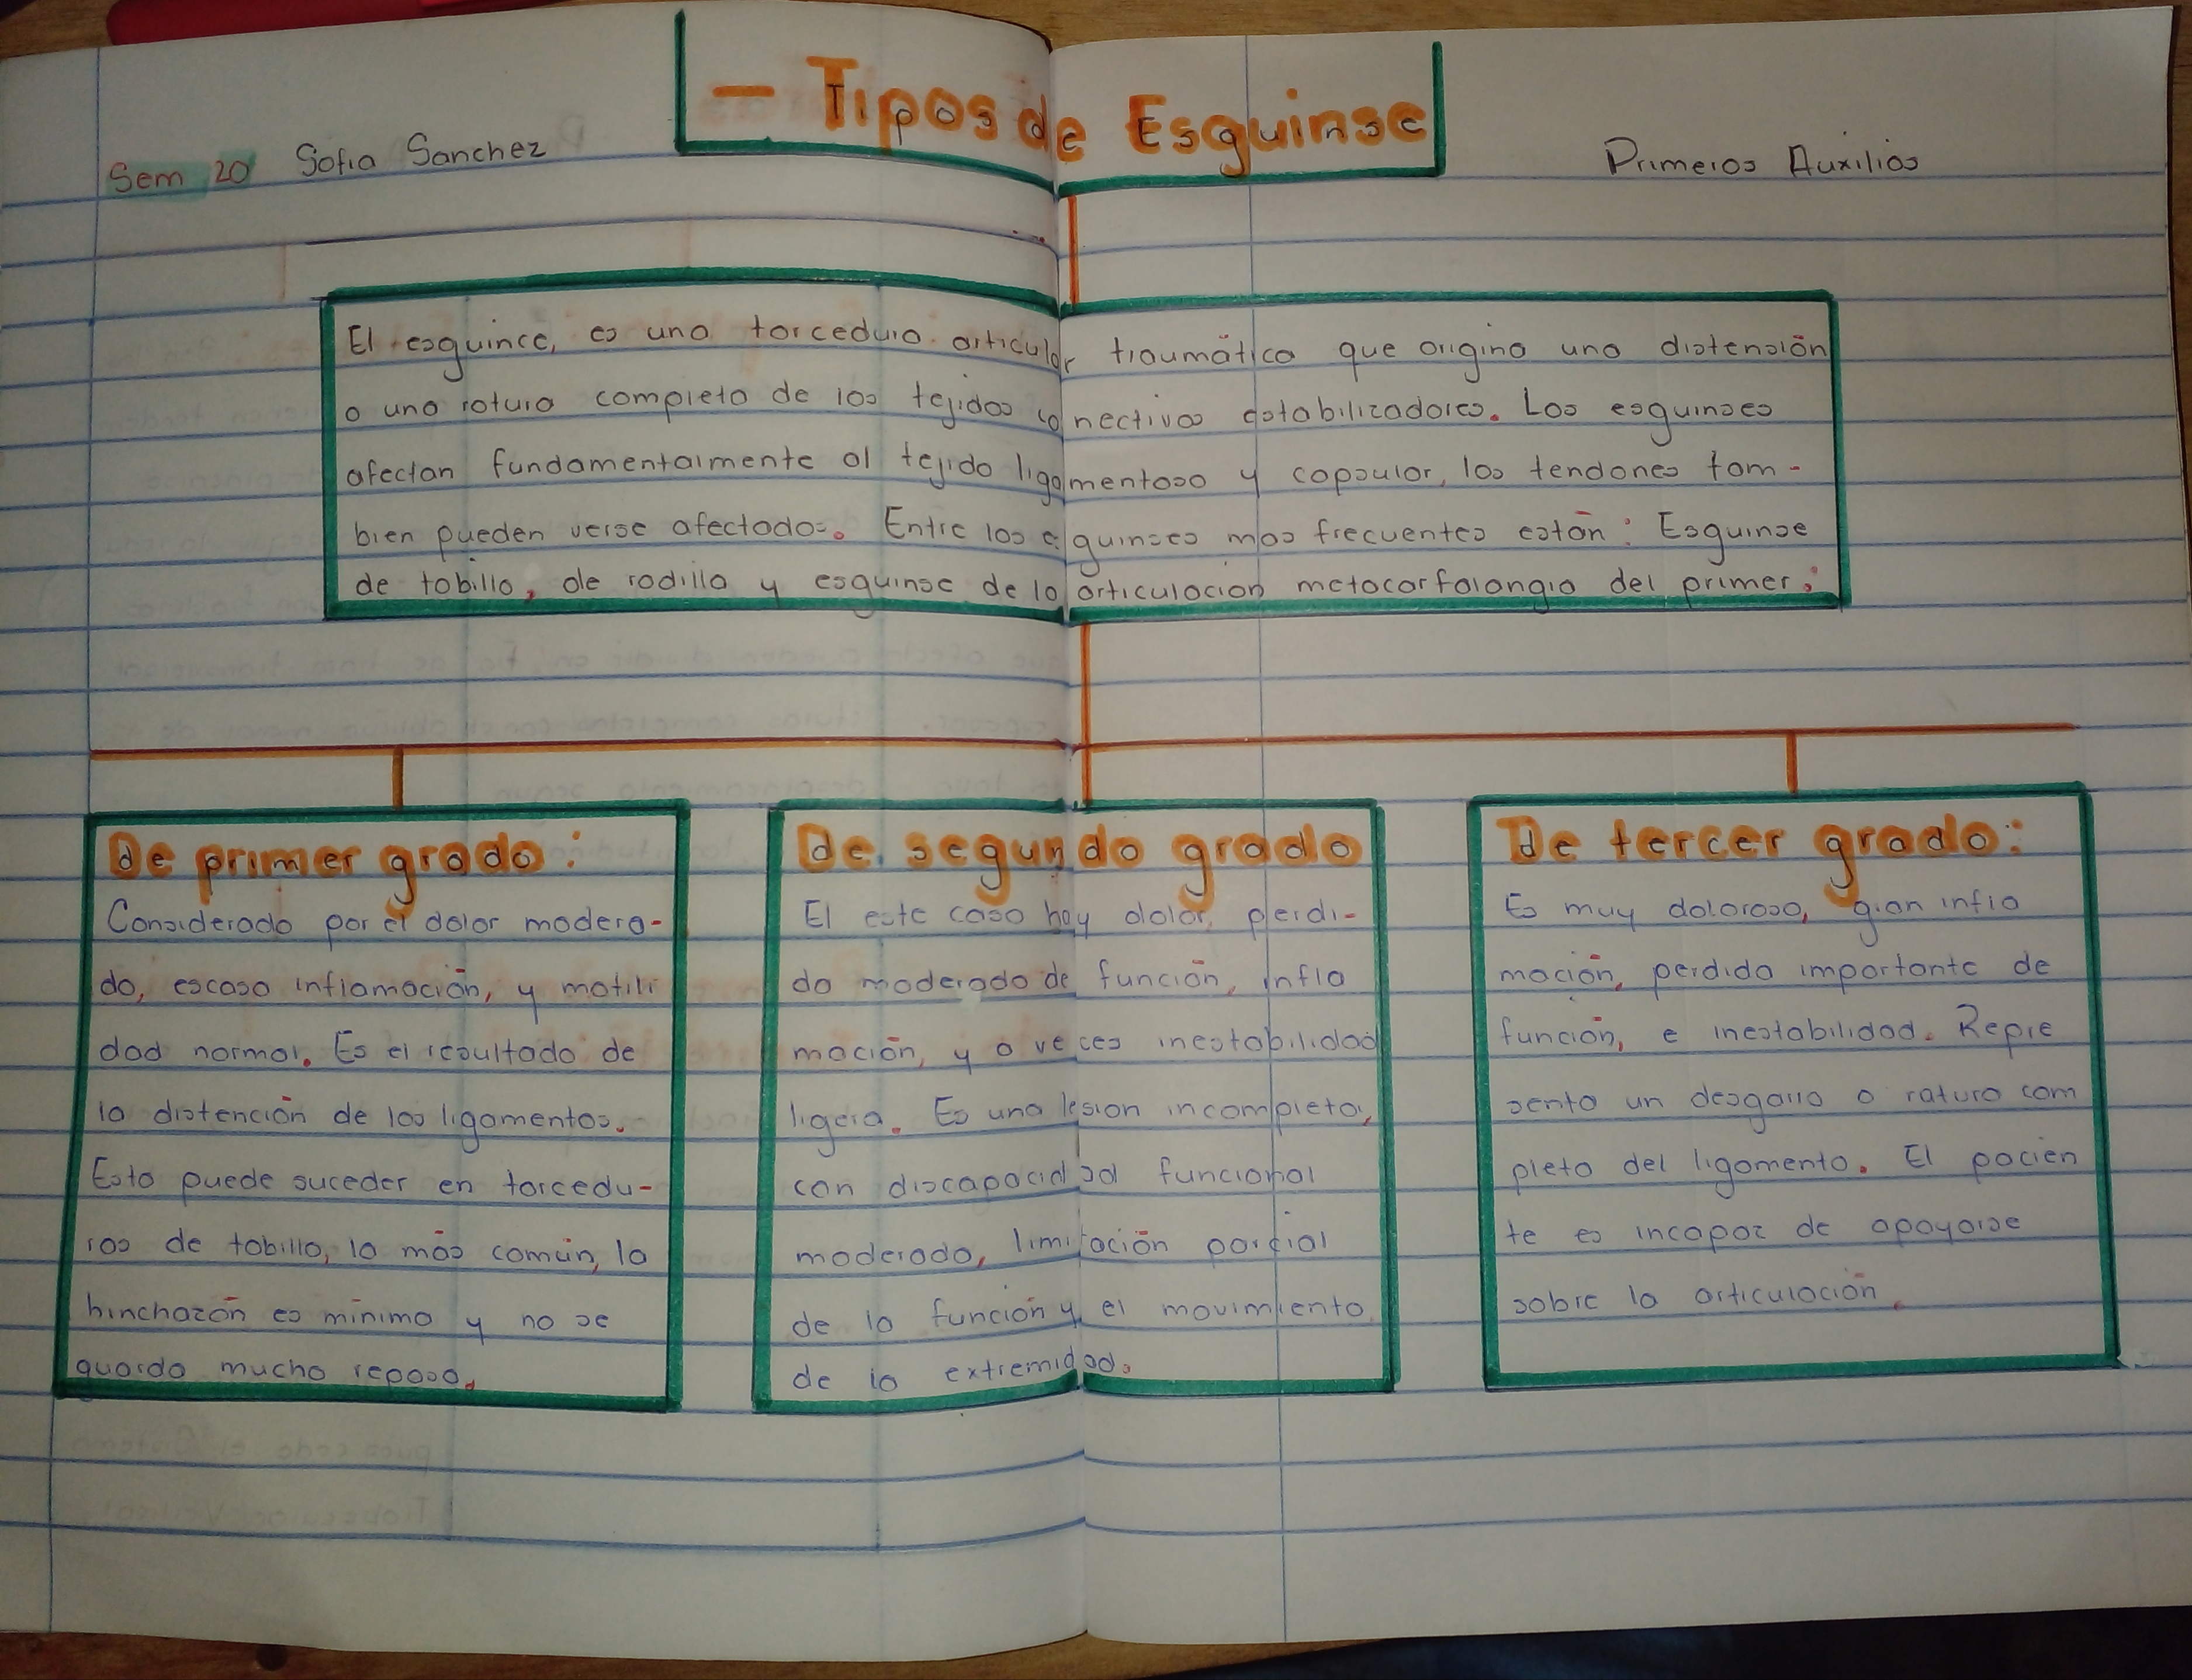 — Tipos de Esguinse
Sem 20 Sofia Sanchez
Primeros Auxilios
El esguince, es una torcedura articular traumática que origina una distensión
o una rotura completa de los tejidos conectivos estabilizadores. Los esguinses
afectan fundamentalmente al tejido ligamentoso y capsular, los tendones tam-
bien pueden verse afectados. Entre los esguinses mas frecuentes están: Esguinse
de tobillo, de rodilla y esguinse de la articulacion metacarfalangia del primer.
De primer grado:
Considerado por el dolor modera-
do, escasa inflamación, y motili
dad normal. Es el resultado de
la distención de los ligamentos.
Esto puede suceder en torcedu-
ras de tobillo, lo más común, la
hinchazón es mínima y no se
guarda mucho reposo.
De segundo grado
El este caso hay dolor, perdi-
da moderada de función, infla
mación, y a veces inestabilidad
ligera. Es una lesion incompleta,
con discapacidad funcional
moderado, limitación parcial
de la función y el movimiento
de la extremidad.
De tercer grado:
Es muy doloroso, gran infla
mación, perdida importante de
función, e inestabilidad. Repre
senta un desgarro o ratura com
pleta del ligamento. El pacien
te es incapaz de apoyarse
sobre la articulación.